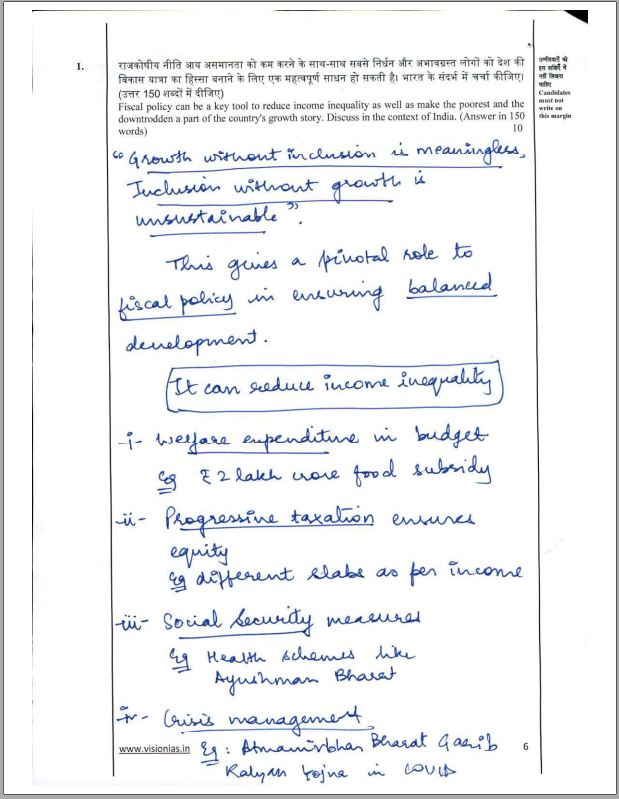 1. राजकोषीय नीति आय असमानता को कम करने के साथ-साथ सबसे निर्धन और अभावग्रस्त लोगों को देश की
विकास यात्रा का हिस्सा बनाने के लिए एक महत्वपूर्ण साधन हो सकती है। भारत के संदर्भ में चर्चा कीजिए।
(उत्तर 150 शब्दों में दीजिए)
Fiscal policy can be a key tool to reduce income inequality as well as make the poorest and the
downtrodden a part of the country's growth story. Discuss in the context of India. (Answer in 150
words) 10
उम्मीदवारों को
इस हाशिए में
नहीं लिखना
चाहिए
Candidates
must not
write on
this margin
"Growth without inclusion is meaningless,
Inclusion without growth is
unsustainable".
This gives a pivotal role to
fiscal policy in ensuring balanced
development.
It can reduce income inequality
i- Welfare expenditure in budget
Eg ₹2 lakh crore food subsidy
ii- Progressive taxation ensures
equity
Eg different slabs as per income
iii- Social Security measures
Eg Health schemes like
Ayushman Bharat
iv- Crisis management
Eg: Atmanirbhar Bharat Garib
Kalyan Yojna in COVID
www.visionias.in
6